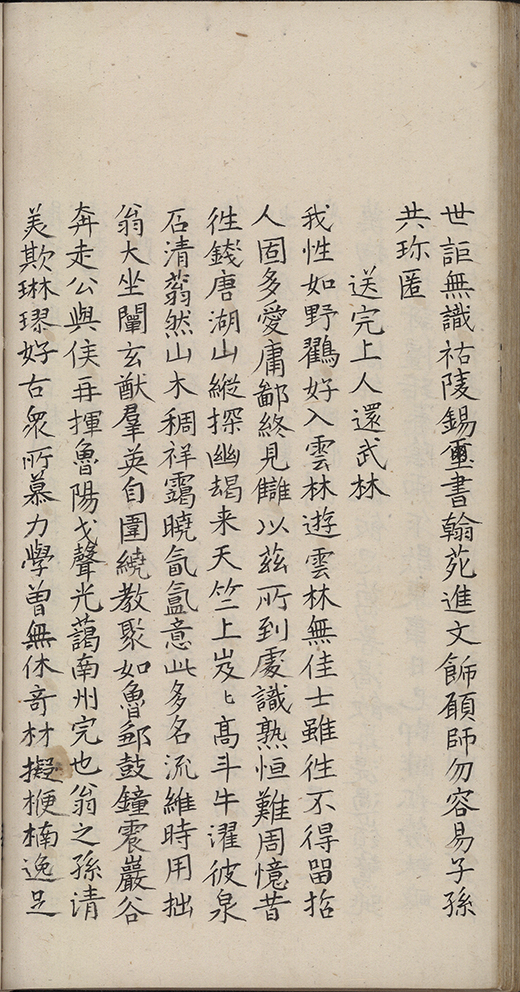 世詎無識祜陵錫璽書翰苑進文飾願師勿容易子孫
共珎匿
送完上人還武林
我性如野鸛好入雲林遊雲林無佳士雖徃不得留招
人固多愛庸鄙終見讎以茲所到處識熟恒難周憶昔
徃錢唐湖山縱探幽朅来天竺上岌〻髙斗牛濯彼泉
石清蓊然山木稠祥靄曉氤氳意此多名流維時用拙
翁大坐闡玄猷羣英自圍繞教聚如魯鄒鼓鐘震巖谷
奔走公與侯再揮魯陽戈聲光藹南州完也翁之孫清
美欺琳璆好古衆所慕力學曽無休竒材擬梗楠逸足